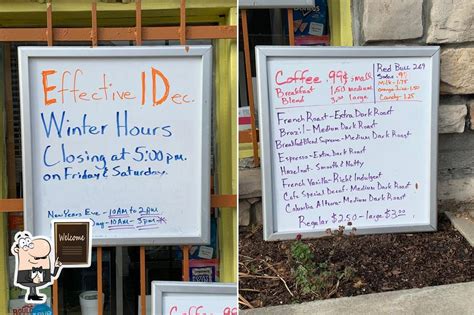 Effective 1 Dec.
Winter Hours
Closing at 5:00 p.m.
on Friday & Saturday
New Years Eve - 10AM to 2AM
Day - 10am - 3pm
Welcome
Coffee 99¢ small
Breakfast 1.50 medium
Blend 2.00 large
Red Bull 2.69
Sodas .99
Milk - 1.75
Orange Juice - 1.50
Candy - 1.25
French Roast - Extra Dark Roast
Brazil - Medium Dark Roast
Breakfast Blend Supreme - Medium Dark Roast
Espresso - Extra Dark Roast
Hazelnut - Smooth & Nutty
French Vanilla - Rich & Indulgent
Cafe Special Decaf - Medium Dark Roast
Columbia Altura - Medium Dark Roast
Regular $2.50 - large $3.00
Coffee